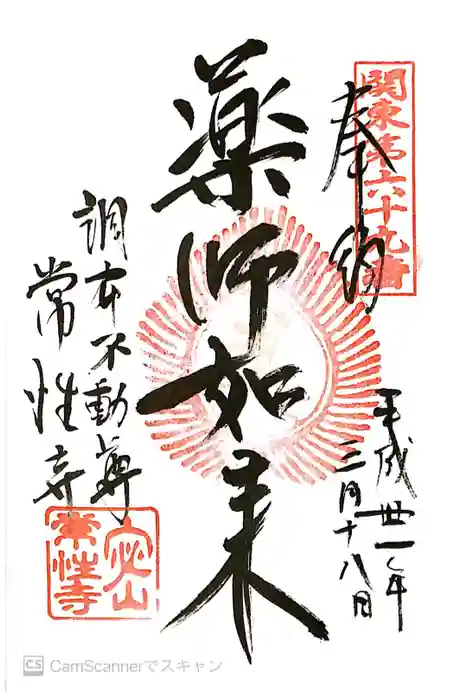 関東第六十九番
奉納
平成卅一年
三月十八日
薬師如来
調布不動尊
常性寺
常性寺
CS CamScannerでスキャン